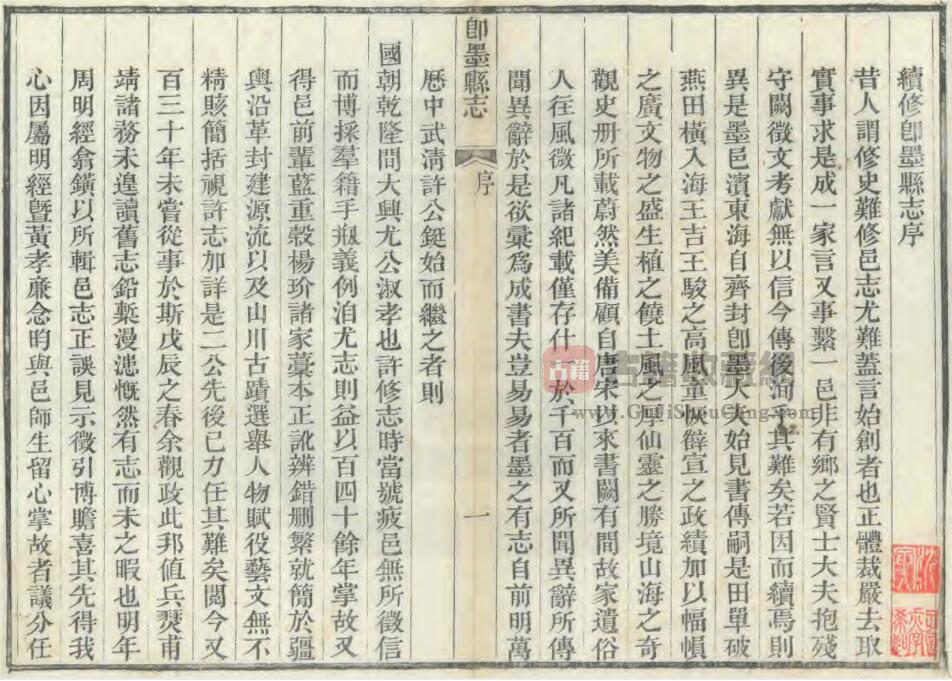 續修卽墨縣志序
昔人謂修史難修邑志尤難蓋言始創者也正體裁嚴去取
實事求是成一家言又事繫一邑非有鄉之賢士大夫抱殘
守闕徵文考獻無以信今傳後洵乎其難矣若因而續焉則
異是墨邑濱東海自齊封卽墨大夫始見書傳嗣是田單破
燕田橫入海王吉王駿之高風童恢薛宣之政績加以幅幀
之廣文物之盛生植之饒土風之厚仙靈之勝境山海之奇
觀史册所載蔚然美備顧自唐宋以來書闕有間故家遺俗
人往風微凡諸紀載僅存什一於千百而又所聞異辭所傳
聞異辭於是欲彙爲成書夫豈易易者墨之有志自前明萬
卽墨縣志
序
一
厯中武淸許公鋌始而繼之者則
國朝乾隆間大興尤公淑孝也許修志時當號疲邑無所徵信
而博採羣籍手剏義例洎尤志則益以百四十餘年掌故又
得邑前輩藍重穀楊玠諸家藁本正訛辨錯刪繁就簡於疆
輿沿革封建源流以及山川古蹟選舉人物賦役藝文無不
精賅簡括視許志加詳是二公先後已力任其難矣閱今又
百三十年未嘗從事於斯戊辰之春余觀政此邦値兵燹甫
靖諸務未遑讀舊志鉛槧漫漶慨然有志而未之暇也明年
周明經翕鐄以所輯邑志正誤見示徵引博贍喜其先得我
心因屬明經曁黃孝廉念昀與邑師生留心掌故者議分任
古籍收藏網
www.GuJiShouCang.com